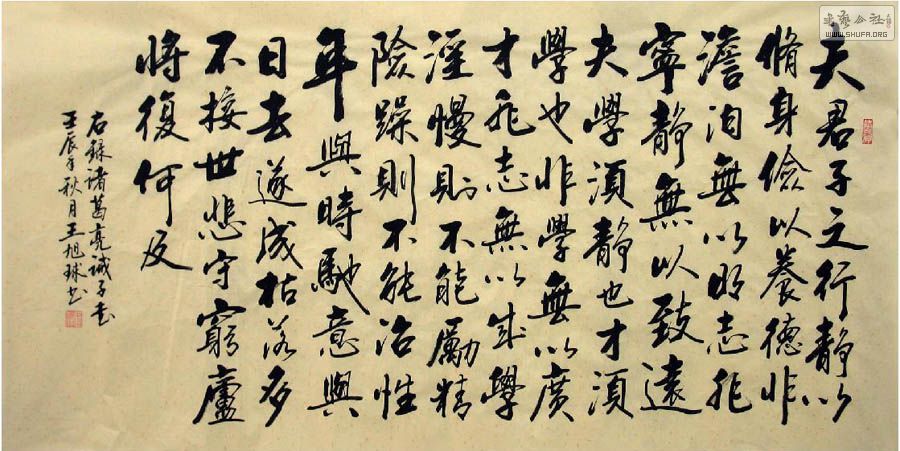 夫君子之行靜以
脩身儉以養德非
澹泊無以明志非
寧靜無以致遠
夫學須靜也才須
學也非學無以廣
才非志無以成學
淫慢則不能勵精
險躁則不能冶性
年與時馳意與
日去遂成枯落多
不接世悲守窮廬
將復何及
右錄諸葛亮誡子書
壬辰年秋月王旭球书
WWW.SHUFA.ORG